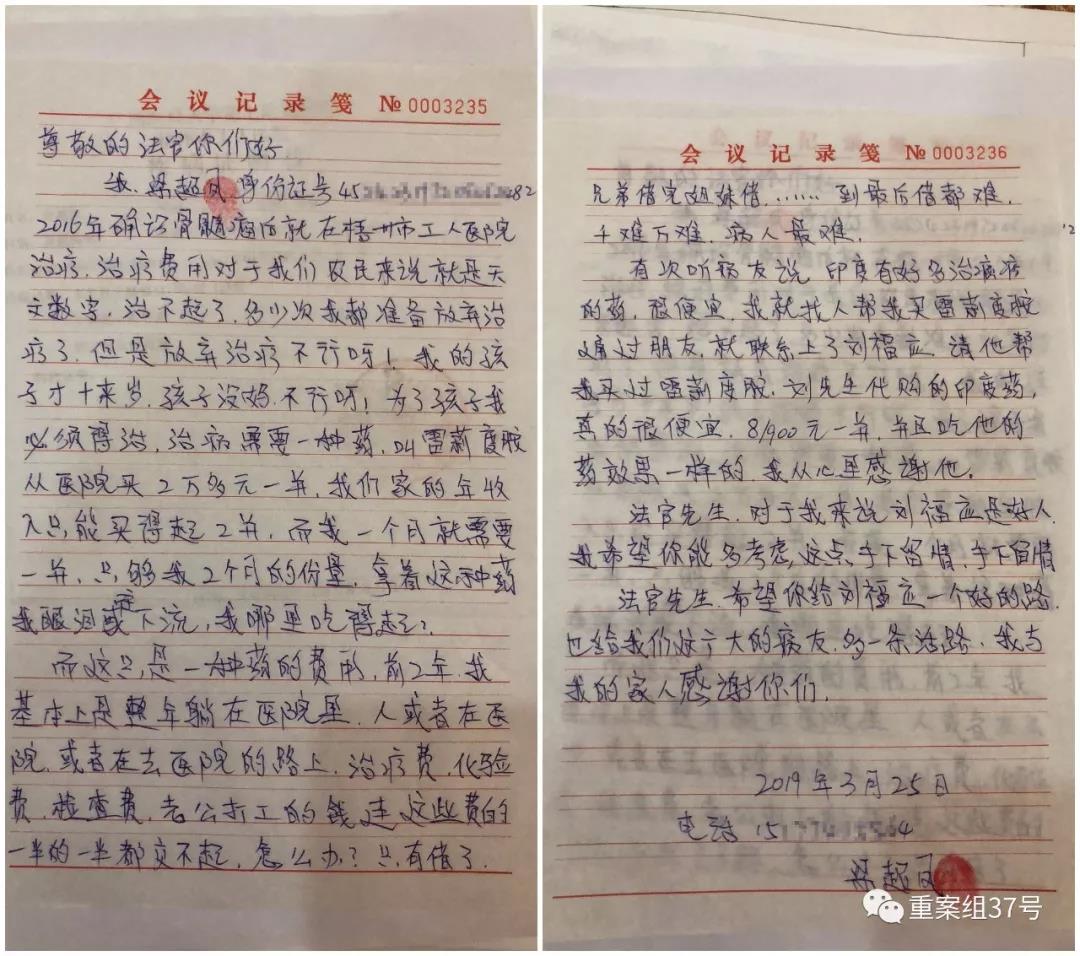 会议记录笺 № 0003235
尊敬的法官你们好
我.梁超凤身份证号45 82
2016年确诊骨髓瘤后就在梧州市工人医院
治疗.治疗费用对于我们农民来说就是天
文数字,治不起了,多少次我都准备放弃治
疗了.但是放弃治疗不行呀!我的孩
子才十来岁.孩子没妈.不行呀!为了孩子我
必须得治,治病需要一种药,叫雷莉度胺
从医院买2万多元一并,我们家的年收
入只能买得起2并,而我一个月就需要
一并,只够我2个月的份量,拿着这种药
我眼泪或下流,我哪里吃得起?
而这只是一种药的费用,前2年.我
基本上是整年躺在医院里.人或者在医
院,或者在去医院的路上.治疗费,化验
费,检查费,老公打工的钱连这些费的
一半的一半都交不起,怎么办?只有借了.
会议记录笺 № 0003236
兄弟借完姐妹借……到最后借都难.
千难万难.病人最难.
有次听病友说.印度有好多治癌症
的药.很便宜.我就找人帮我买雷莉度胺
通过朋友,就联系上了刘福应.请他帮
我买过雷莉度胺.刘先生代购的印度药,
真的很便宜.8/900元一并,并且吃他的
药效果一样的.我从心里感谢他.
法官先生.对于我来说刘福应是好人.
我希望你能多考虑这点,手下留情,手下留情
法官先生.希望你给刘福应一个好的路.
也给我们这广大的病友,多一条活路,我与
我的家人感谢你们.
2019年3月25日
电话 15 4
梁超凤
重案组37号